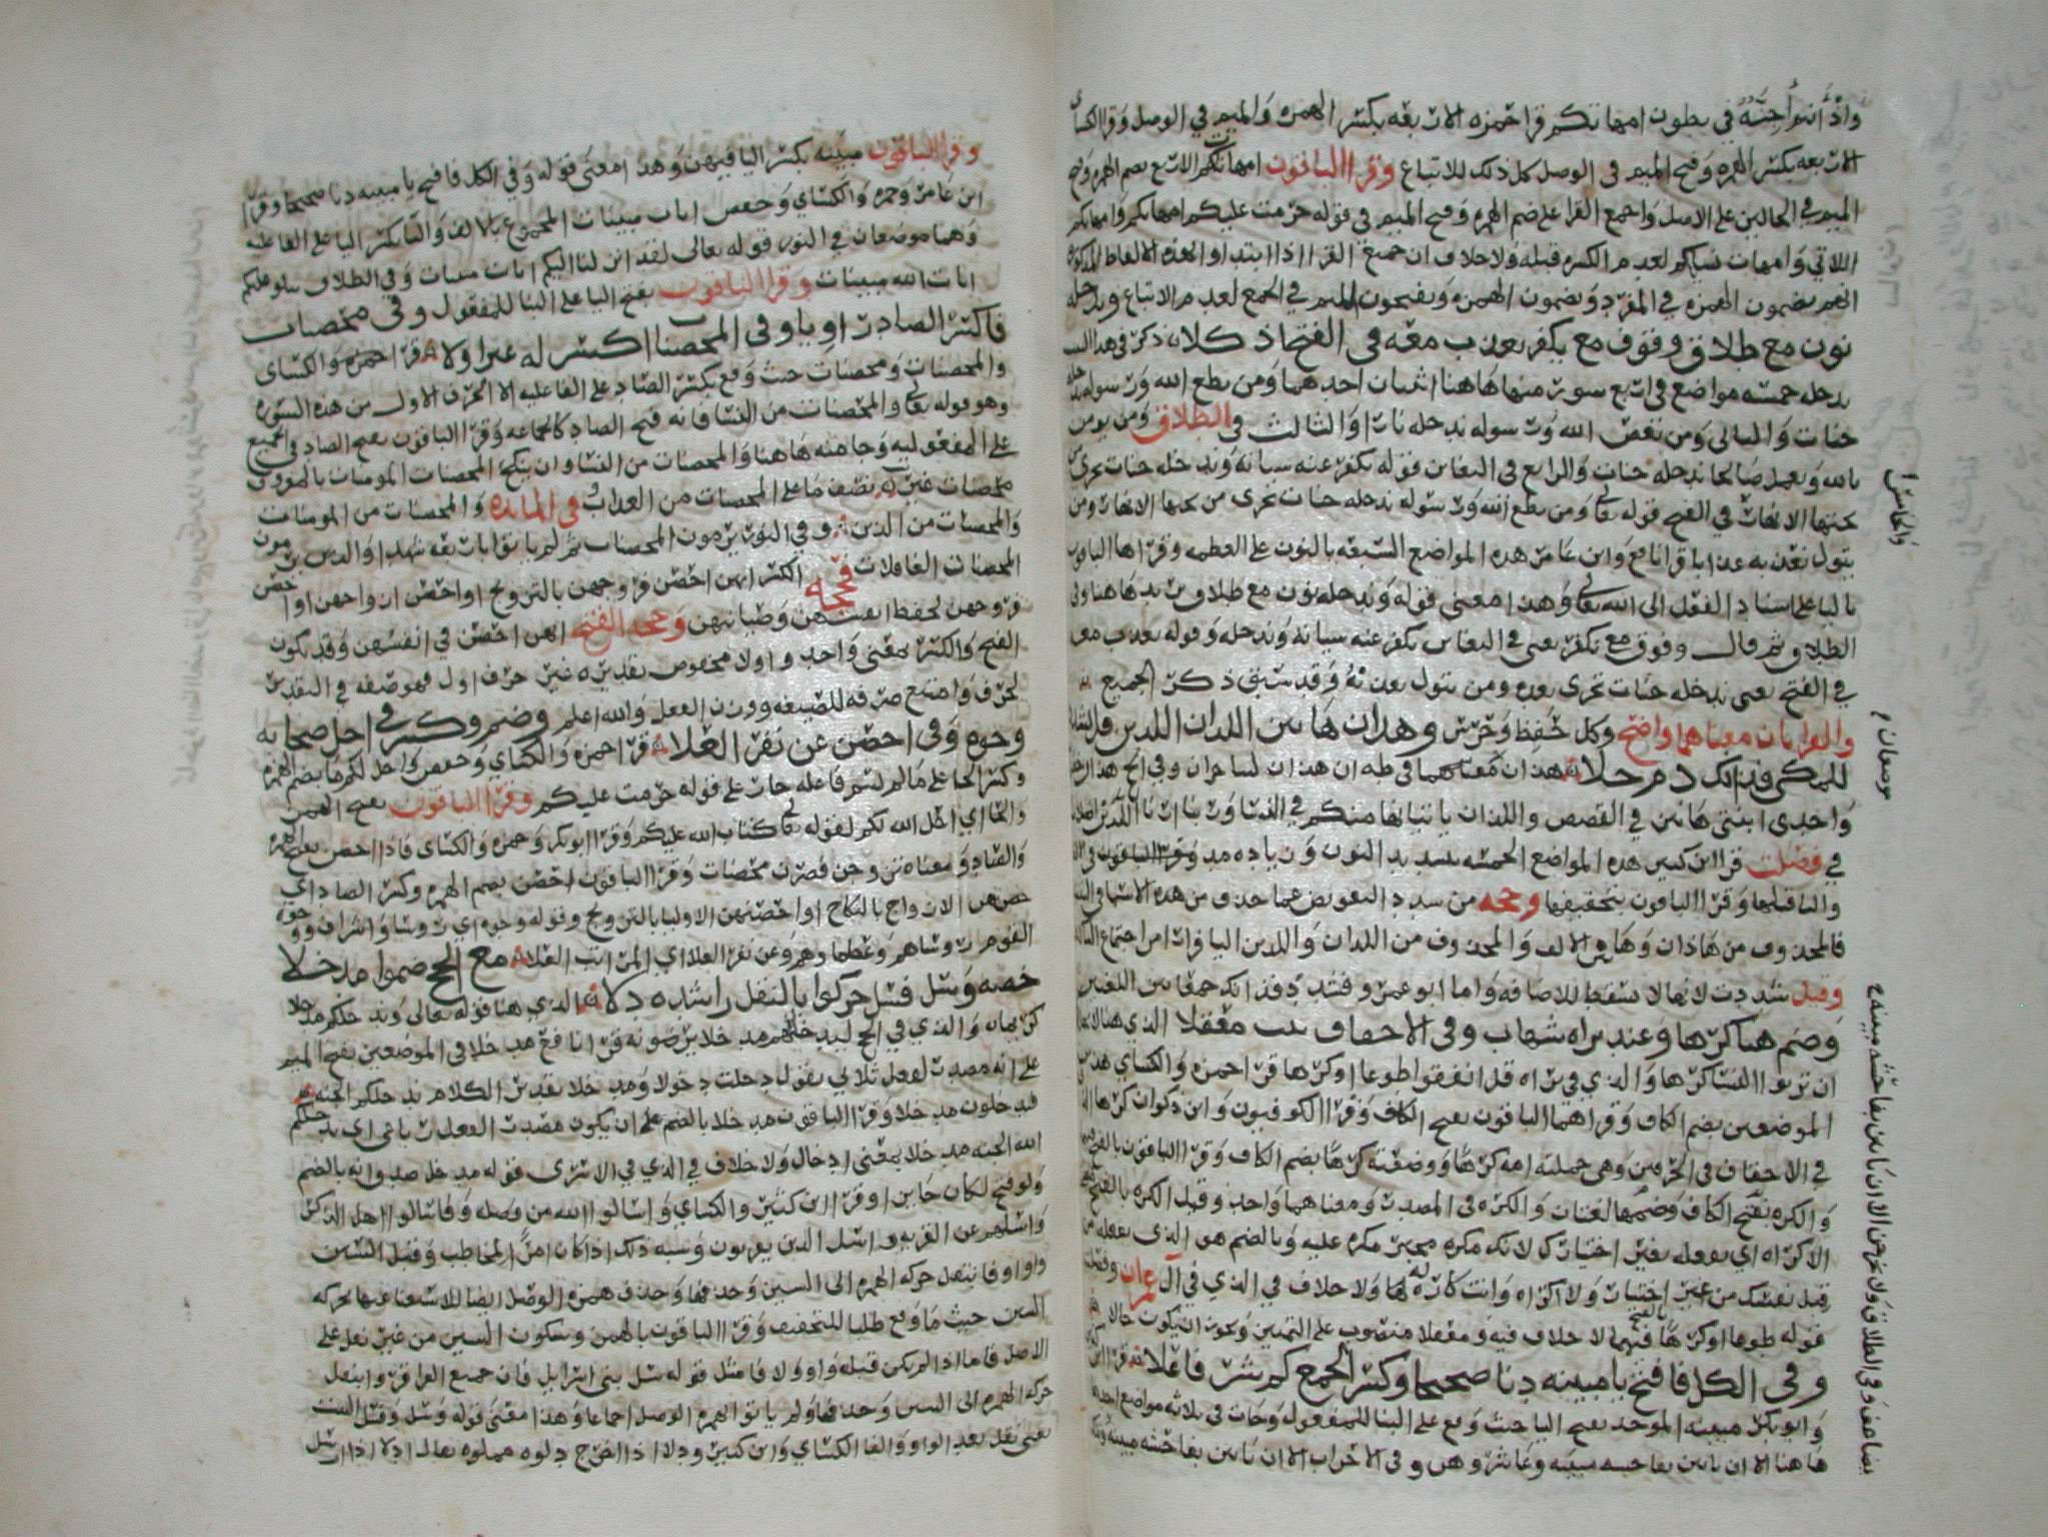 واذ انتم اجنة في بطون امهاتكم قرا حمزه الاربعه بكسر الهمزه والميم في الوصل وقرا الكساي
الاربعه بكسر الهمزه وفتح الميم في الوصل كل ذلك للاتباع وقرا الباقون امهاتكم الاربع بضم الهمزه وفتح
الميم في الحالين على الاصل واجمع القرا على ضم الهمزه وفتح الميم في قوله حرمت عليكم امهاتكم وامهاتكم
اللاتي وامهات نسايكم لعدم الكسره قبله ولا خلاف ان جميع القرا اذا ابتداوا بهذه الالفاظ المذكوره
انهم يضمون الهمزه في المفرد ويضمون الهمزه ويفتحون الميم في الجمع لعدم الاتباع وندخله
نون مع طلاق وفوق مع يكفر نعذب معه في الفتح اذ كلا ذكر في هذا البيت
ندخله خمسه مواضع في اربع سور منها هاهنا اثنان احدهما ومن يطع الله ورسوله ندخله
جنات والثاني ومن يعص الله ورسوله ندخله نارا والثالث في الطلاق ومن يومن
بالله ويعمل صالحا ندخله جنات والرابع في التغابن قوله نكفر عنه سياته وندخله جنات تجري من
تحتها الانهار في الفتح قوله تعالى ومن يطع الله ورسوله ندخله جنات تجري من تحتها الانهار ومن
يتول نعذبه عذابا قرا نافع وابن عامر هذه المواضع السبعه بالنون على العظمه وقراها الباقون
باليا على اسناد الفعل الى الله تعالى وهذا معنى قوله وندخله نون مع طلاق يريد هاهنا وفي
الطلاق ثم قال وفوق مع نكفر يعني في التغابن نكفر عنه سياته وندخله وقوله نعذب معه
في الفتح يعني ندخله جنات تجري ومن يتول نعذبه وقد سبق ذكر الجميع
والقراتان معناهما واضح وكل حفظ وحرس وهذان هاتين اللذان اللذين قل يشدد
للمكي فذانك دم حلا هذان معناهما في طه ان هذان لساحران وفي الحج هذان خصمان
واحدى ابنتي هاتين في القصص واللذان ياتيانها منكم في النسا وربنا ارنا اللذين اضلانا
في فصلت قرا ابن كثير هذه المواضع الخمسه بتشديد النون وزياده مد وقرا الباقون
والتا قبلها وقرا الباقون بتخفيفها وحجه من شدد التعويض عما حذف من هذه الاسما في التثنيه
فالمحذوف من هاذان وهاتين الالف والمحذوف من اللذان واللذين اليا فرارا من اجتماع الساكنين
وقيل شددت لانها لا تسقط للاضافه واما ابو عمرو فشدد فذانك جمعا بين اللغتين
وضم هنا كرها وعند براه شهاب وفي الاحقاف ثبت معقلا الذي هنا لا يحل
ان ترثوا النسا كرها والذي في براه قل انفقوا طوعا او كرها قرا حمزه والكساي هذين
الموضعين بضم الكاف وقراهما الباقون بفتح الكاف وقرا الكوفيون وابن ذكوان كرها
في الاحقاف في الحرفين وهي حملته امه كرها ووضعته كرها بضم الكاف وقرا الباقون بالفتح فيه
والكره بفتح الكاف وضمها لغتان والكره في المصدر ومعناهما واحد وقيل الكره بالفتح
الاكراه اي يفعله بغير اختيارك لانك مكره مجبر مكره عليه وبالضم هو الذي يفعله من
قبل نفسك من غير اختيار ولا اكراه وانت كاره لها ولا خلاف في الذي في آل عمران وفصلت
قوله طوعا او كرها بالفتح فيهما لا خلاف فيه ومعقلا منصوب على التمييز ويجوز ان يكون حالا
وفي الكل فافتح يا مبينه دنا صحيحا وكسر الجمع كم شرفا علا قرا ابن كثير
وابو بكر مبينه الموحد بفتح اليا حيث وقع على البنا للمفعول وجات في ثلاثه مواضع احدها
هاهنا الا ان ياتين بفاحشه مبينه وعاشروهن وفي الاحزاب الا ان ياتين بفاحشه مبينه
والخامس
موضعان
يضاعف وفي الطلاق ولا يخرجن الا ان ياتين بفاحشه مبينه
وقرا الباقون مبينه بكسر اليا فيهن وهذا معنى قوله وفي الكل فافتح يا مبينه دنا صحيحا وقرا
ابن عامر وحمزه والكساي وحفص ايات مبينات المجموع بالالف والتا بكسر اليا على الفاعليه
وهما موضعان في النور قوله تعالى لقد انزلنا اليكم ايات مبينات وفي الطلاق يتلو عليكم
ايات الله مبينات وقرا الباقون بفتح اليا على البنا للمفعول وفي محصنات
فاكسر الصاد راويا وفي المحصنات اكسر له غير اولا قرا حمزه والكساي
والمحصنات ومحصنات حيث وقع بكسر الصاد على الفاعليه الا الحرف الاول من هذه السوره
وهو قوله تعالى والمحصنات من النسا فانه فتح الصاد كالجماعه وقرا الباقون بفتح الصاد في الجميع
على المفعوليه وجا منه هاهنا والمحصنات من النسا وان ينكح المحصنات المومنات بالمعروف
محصنات غير نصف ما على المحصنات من العذاب وفي المائده والمحصنات من المومنات
والمحصنات من الذين وفي النور يرمون المحصنات ثم لم ياتوا باربعه شهدا والذين يرمون
المحصنات الغافلات فحجه الكسر انهن احصن فروجهن بالتزويج او احصن ازواجهن او احصن
فروجهن لحفظ انفسهن وصيانتهن وحجه الفتح انهن احصن في انفسهن وقد يكون
الفتح والكسر بمعنى واحد واولا مخفوض بتقديره غير حرف اول فهو صفه في التقدير
لحرف وامتنع صرفه للصفه ووزن الفعل والله اعلم وضم وكسر في احل صحابه
وجوه وفي احصن عن نفر العلا قرا حمزه والكساي وحفص واحل لكم ما بضم الهمزه
وكسر الحا على ما لم يسم فاعله جار على قوله حرمت عليكم وقرا الباقون بفتح الهمزه
والحا اي احل الله لكم لقوله تعالى كتاب الله عليكم وقرا ابو بكر وحمزه والكساي فاذا احصن بفتح الهمزه
والصاد ومعناه تزوجن فصرن محصنات وقرا الباقون احصن بضم الهمزه وكسر الصاد اي
حصنهن الازواج بالنكاح او احصنهن الاوليا بالتزويج وقوله وجوه اي روسا واشراف ووجوه
القوم روساهم وعظماوهم وعن نفر العلا اي المراتب العلا مع الحج ضموا مدخلا
خصه وسل فسل حركوا بالنقل راشده دلا الذي هنا قوله تعالى وندخلكم مدخلا
كريما والذي في الحج ليدخلنهم مدخلا يرضونه قرا نافع مدخلا في الموضعين بفتح الميم
على انه مصدر لفعل ثلاثي يقول دخلت دخولا ومدخلا بتقدير الكلام ندخلكم الجنه
فيدخلون مدخلا وقرا الباقون مدخلا بالضم على ان يكون مصدر الفعل رباعي اي يدخلكم
الله الجنه مدخلا بمعنى ادخال ولا خلاف في الذي في الاسرى قوله مدخل صدق انه بالضم
ولو فتح لكان جايزا وقرا ابن كثير والكساي واسالوا الله من فضله وفاسالوا اهل الذكر
واسلهم عن القريه فاسل الذين يقرون وشبه ذلك اذا كان امرا لمخاطب وقبل السين
واو او فا بنقل حركه الهمزه الى السين وحذفها وحذف همزه الوصل ايضا للاستغنا عنها بحركه
السين حيث ما وقع طلبا للتخفيف وقرا الباقون بالهمز وسكون السين من غير نقل على
الاصل فاما اذا لم يكن قبله واو ولا فا مثل قوله سل بني اسرايل فان جميع القرا قروا بنقل
حركه الهمزه الى السين وحذفها ولم ياتوا بهمزه الوصل اجماعا وهذا معنى قوله وسل وفسل البيت
يعني نقل بعد الواو والفا الكساي وابن كثير ودلا اذا اخرج دلوه مملوه يقال ادلا اذا ارسل